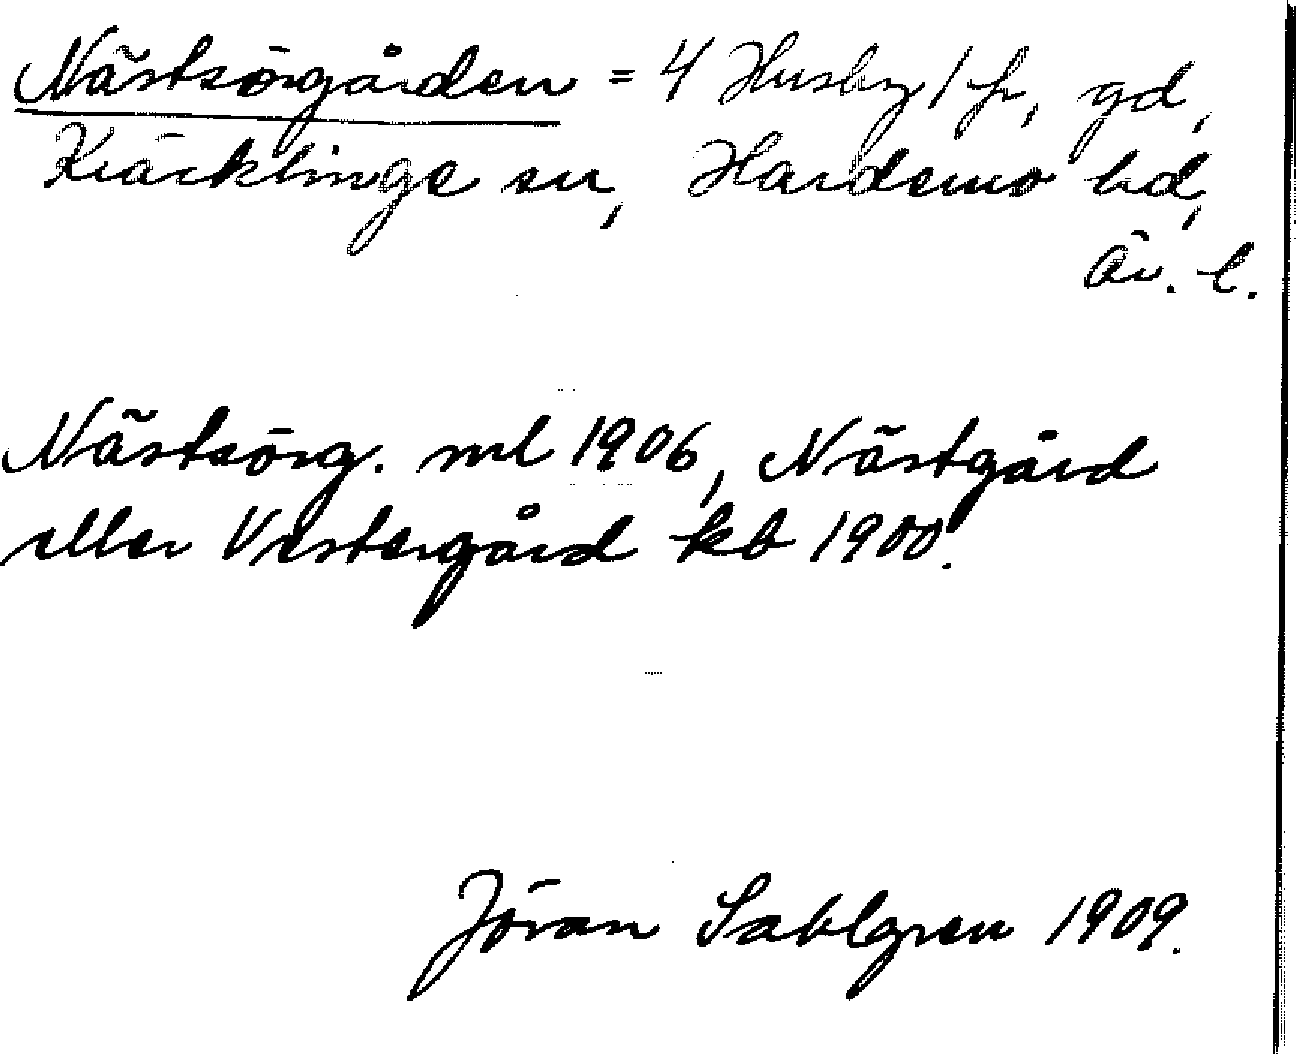 Nästsörgården = 4 Husby 1 fr, gd,
Kräcklinge sn, Hardemo hd,
Ör. l.
Nästsörg. ml 1906, Nästgård
eller Vestergård kb 1900.
Jöran Sahlgren 1909.